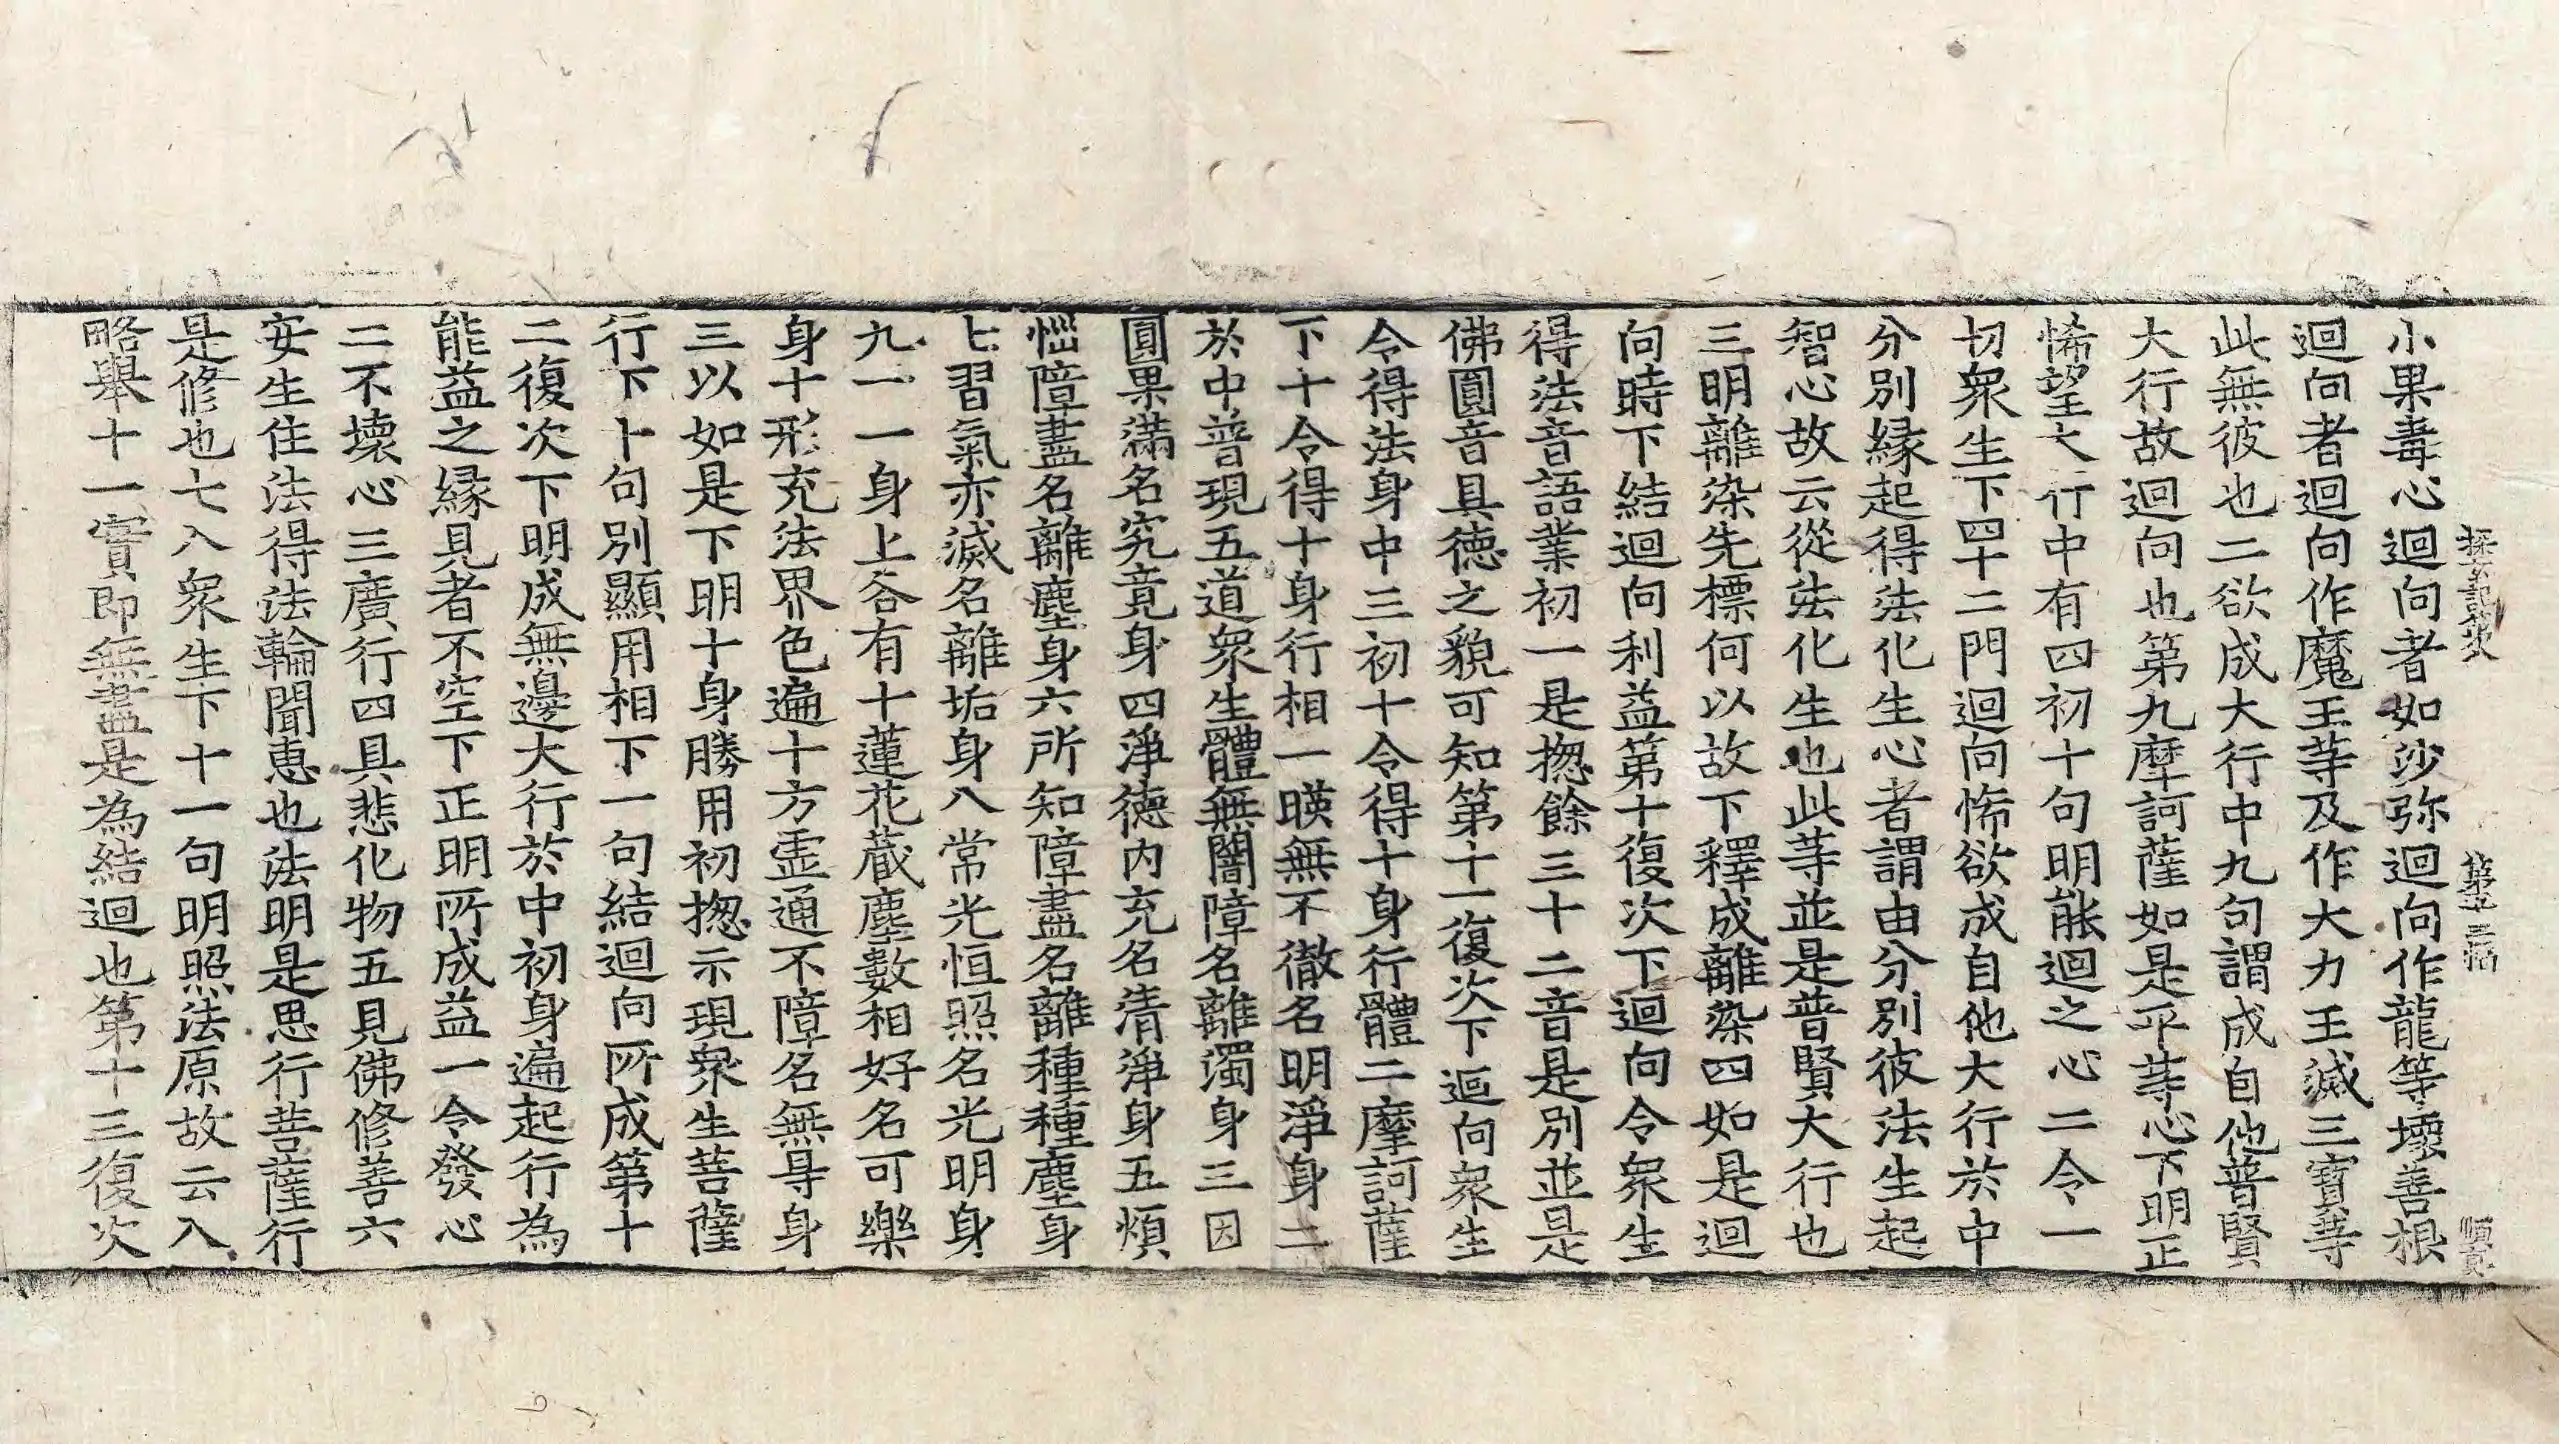 探玄記第八 第十三幅 順真
小果毒心迴向者如沙弥迴向作龍等壞善根
迴向者迴向作魔王䓁及作大力王滅三寶䓁
此無彼也二欲成大行中九句謂成自他普賢
大行故迴向也第九摩訶薩如是平䓁心下明正
悕望大行中有四初十句明能迴之心二令一
切衆生下四十二門迴向悕欲成自他大行於中
分別縁起得法化生心者謂由分別彼法生起
智心故云從法化生也此䓁並是普賢大行也
三明離染先標何以故下釋成離染四如是迴
向時下結迴向利益第十復次下迴向令衆生
得法音語業初一是揔餘三十二音是別並是
佛圓音具德之貌可知第十一復次下迴向衆生
令得法身中三初十令得十身行體二摩訶薩
下十令得十身行相一暎無不徹名明淨身二
於中普現五道衆生體無闇障名離濁身三因
圓果滿名究竟身四淨德内充名清淨身五煩
惱障盡名離塵身六所知障盡名離種種塵身
七習氣亦滅名離垢身八常光恒照名光明身
九一一身上各有十蓮花蔵塵數相好名可樂
身十形充法界色遍十方霊通不障名無㝵身
三以如是下明十身勝用初揔示現衆生菩薩
行下十句別顯用相下一句結迴向所成第十
二復次下明成無邊大行於中初身遍起行為
能益之縁見者不空下正明所成益一令發心
二不壞心三廣行四具悲化物五見佛修善六
安生住法得法輪聞恵也法明是思行菩薩行
是修也七八衆生下十一句明照法原故云入
略舉十一實即無盡是為結迴也第十三復次